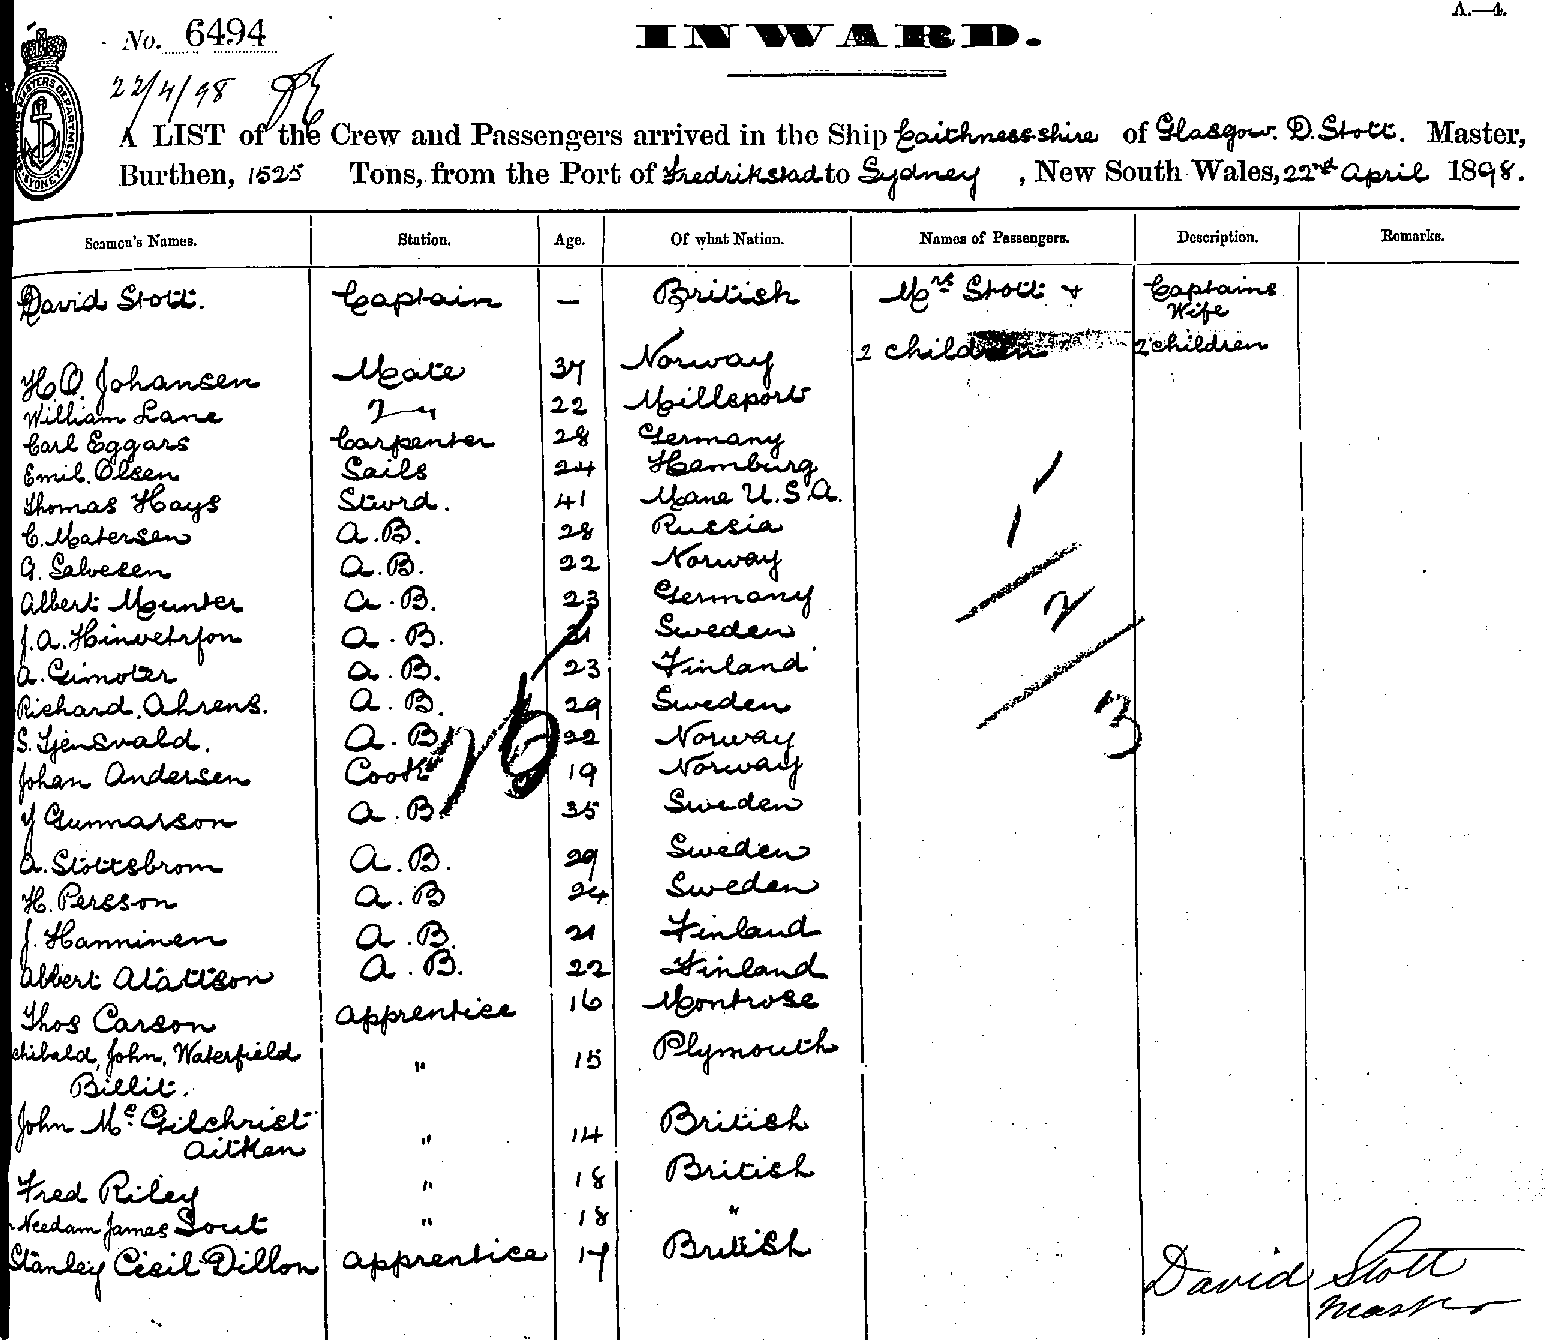 A.—4.
No. 6494
INWARD.
22/4/98
A LIST of the Crew and Passengers arrived in the Ship Caithness-shire of Glasgow. D. Stott. Master,
Burthen, 1525 Tons, from the Port of Fredrikstad to Sydney, New South Wales, 22nd April 1898.
Seamen's Names. Station. Age. Of what Nation. Names of Passengers. Description. Remarks.
David Stott. Captain — British Mrs Stott + Captains
Wife
2 children 2 children
H.O. Johansen Mate 37 Norway
William Lane 2 22 Millsport
Carl Eggars Carpenter 28 Germany
Emil. Olsen Sails 24 Hamburg
Thomas Hays Stwrd. 41 Mane U.S.A.
C. Matersen A.B. 28 Russia
G. Salvesen A.B. 22 Norway
Albert Munter A.B. 23 Germany
J.A. A.B. 21 Sweden
A. Gimoter A.B. 23 Finland
Richard. Ahrens. A.B. 29 Sweden
S. Tjensvald. A.B 22 Norway
Johan Andersen Cook 19 Norway
Y Gunnarson A.B. 35 Sweden
A. Stottsbrom A.B. 29 Sweden
H. Persson A.B 24 Sweden
J. Hanninen A.B. 21 Finland
Albert Alattson A.B. 22 Finland
Thos Carson Apprentice 16 Montrose
chibald, John, Waterfield " 15 Plymouth
Billit.
John Mc Gilchrist
Aitken " 14 British
Fred Riley " 18 British
Needam James Sout " 18 "
Stanley Cecil Dillon Apprentice 17 British
1
1
2
3
25
David Stott
Master